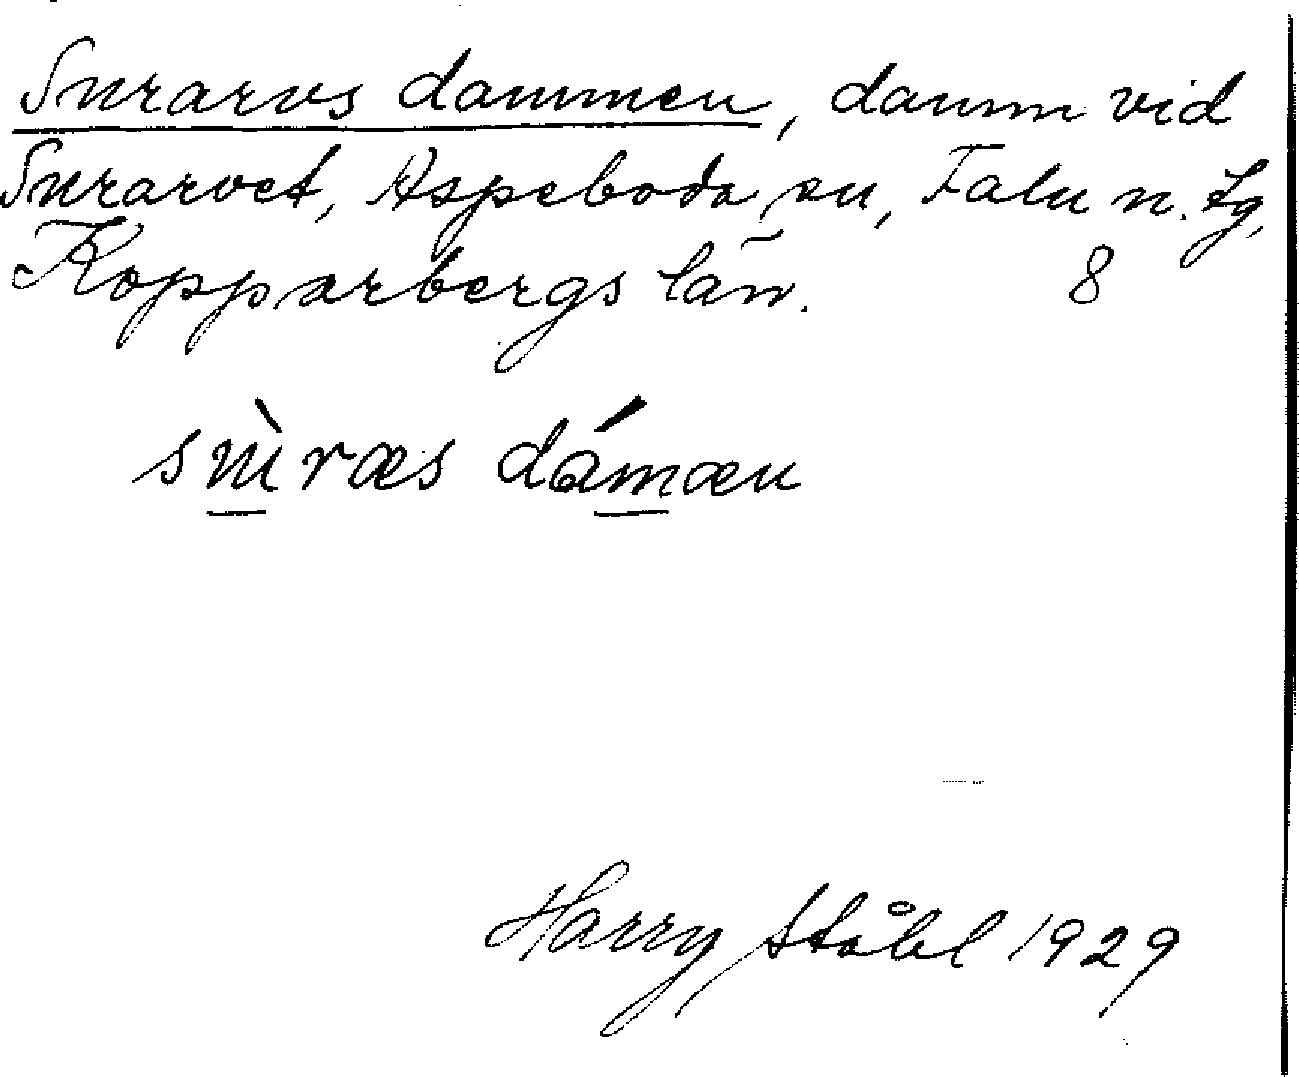 Surarvs dammen, damm vid
Surarvet, Aspeboda sn, Falu n. tg,
Kopparbergs län. 8
sùræs dámæn
Harry Ståhl 1929